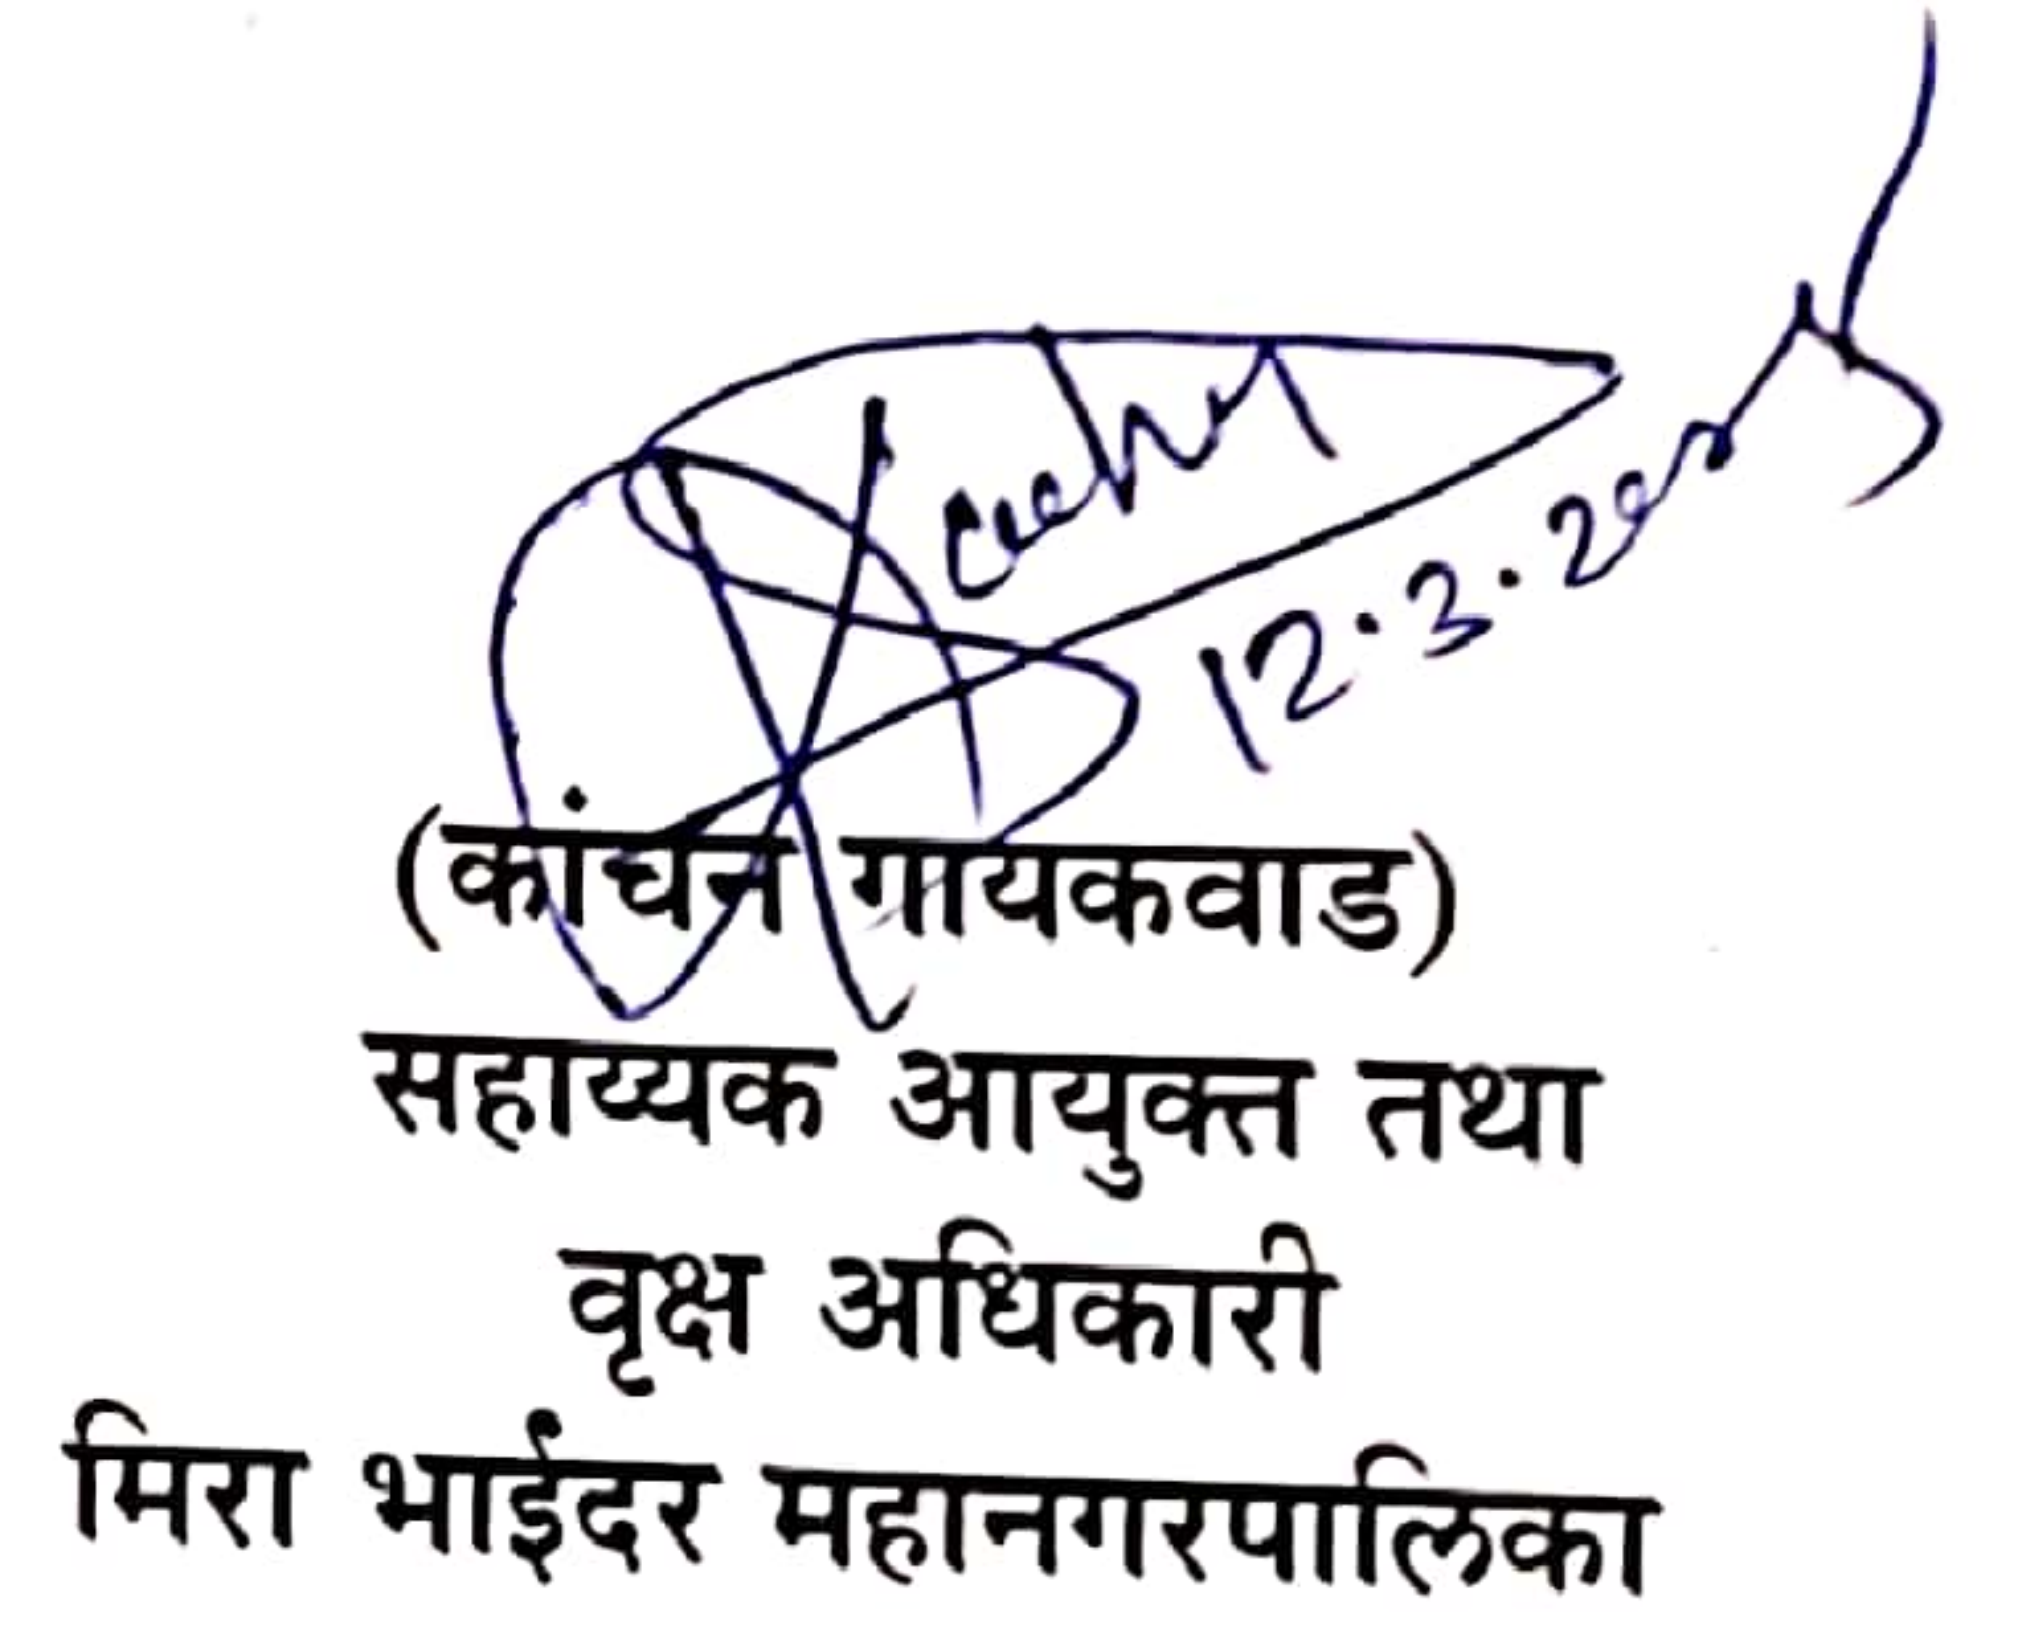 12.3.2025
(कांचन गायकवाड)
सहाय्यक आयुक्त तथा
वृक्ष अधिकारी
मिरा भाईंदर महानगरपालिका